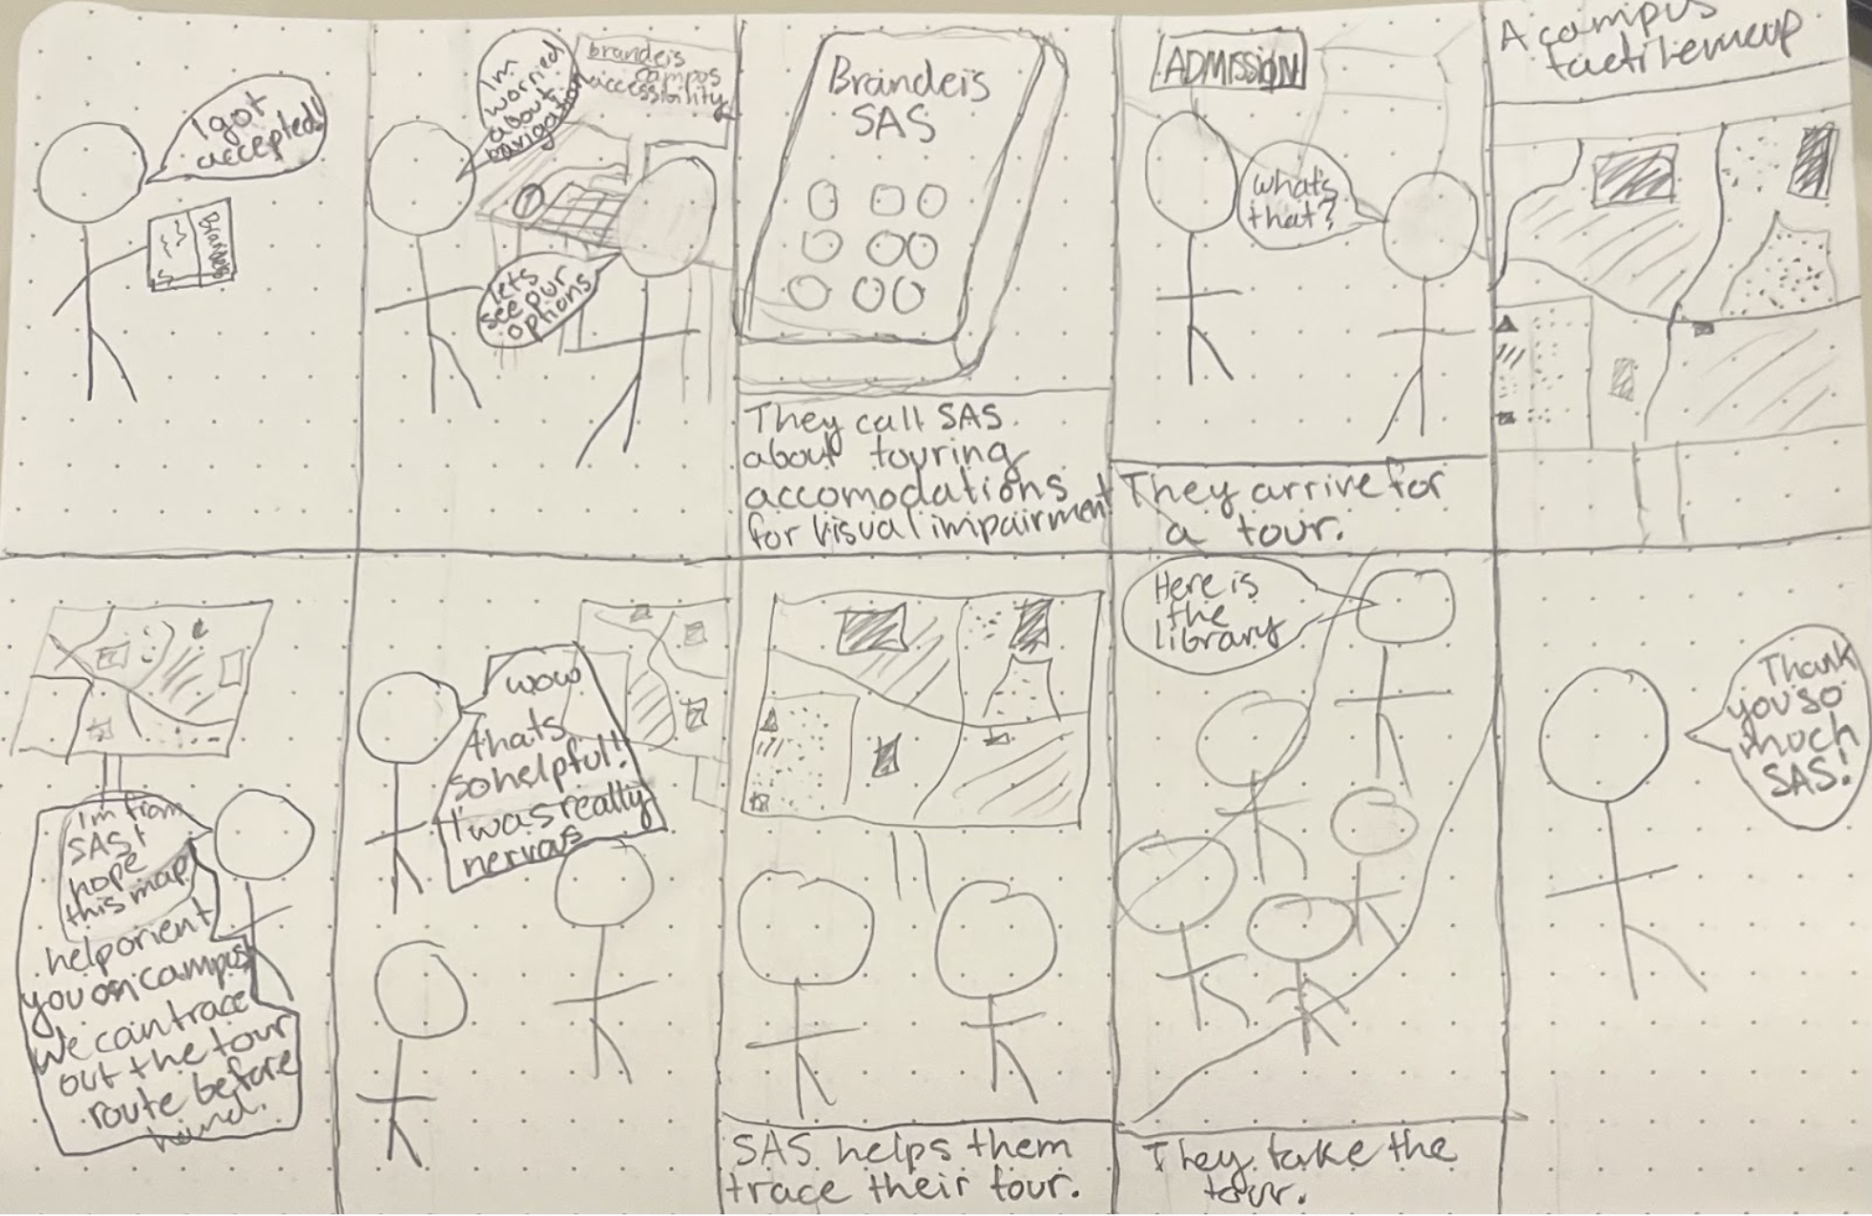 I got
accepted!
Brandeis
Im
worried
about
navigation
brandeis
campus
accessibility
lets
see our
options
Brandeis
SAS
They call SAS
about touring
accomodations
for visual impairment
ADMISSION
what's
that?
They arrive for
a tour.
A campus
tactile map
Im from
SAS I
hope
this map
help orient
you on campus
We can trace
out the tour
route before
hand.
wow
thats
so helpful!
I was really
nervous
SAS helps them
trace their tour.
Here is
the
library
They take the
tour.
Thank
you so
much
SAS!